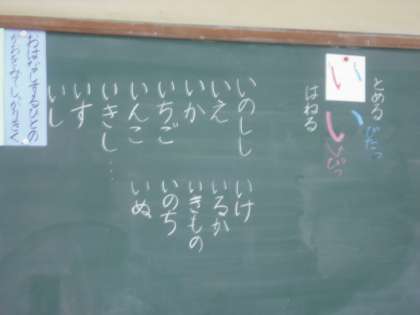 とめる ぴたっ
い
はねる
いのしし いけ
いえ いるか
いか いきもの
いちご いのち
いんこ いぬ
いきし…
いす
いし
おはなしするひとの